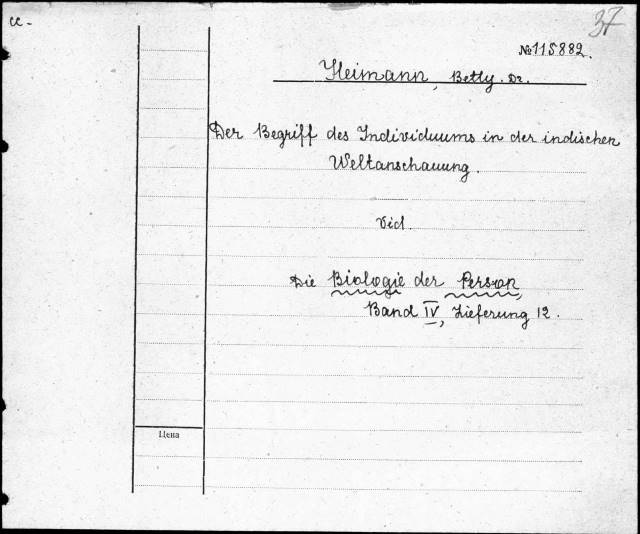 cc-
37
№115882.
Heimann, Betty. Dr.
Der Begriff des Individuums in der indischen
Weltanschauung.
Vid.
Die Biologie der Person,
Band IV, Lieferung 12.
Цена